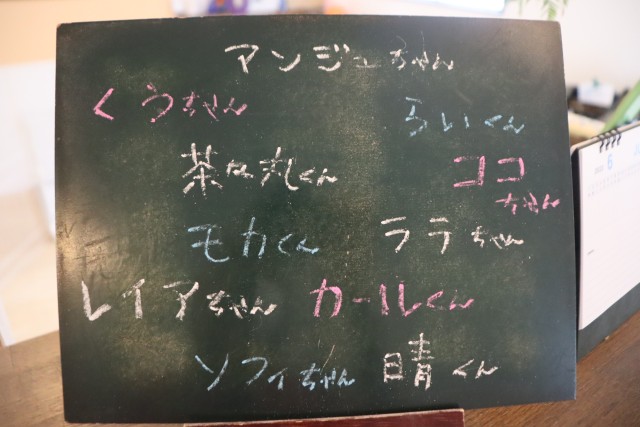 アンジュちゃん
くうちゃん らいくん
茶々丸くん ココちゃん
モカくん ララちゃん
レイアちゃん カールくん
ソフィちゃん 晴くん
6